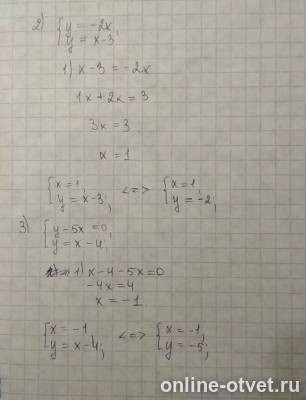 2) { y = -2x,
y = x-3
1) x-3 = -2x
1x + 2x = 3
3x = 3
x = 1
{ x = 1, <=> { x = 1,
y = x-3; y = -2;
3) { y-5x = 0,
y = x-4;
1) x-4-5x=0
-4x = 4
x = -1
{ x = -1 <=> { x = -1,
y = x-4; y = -5;
online-otvet.ru